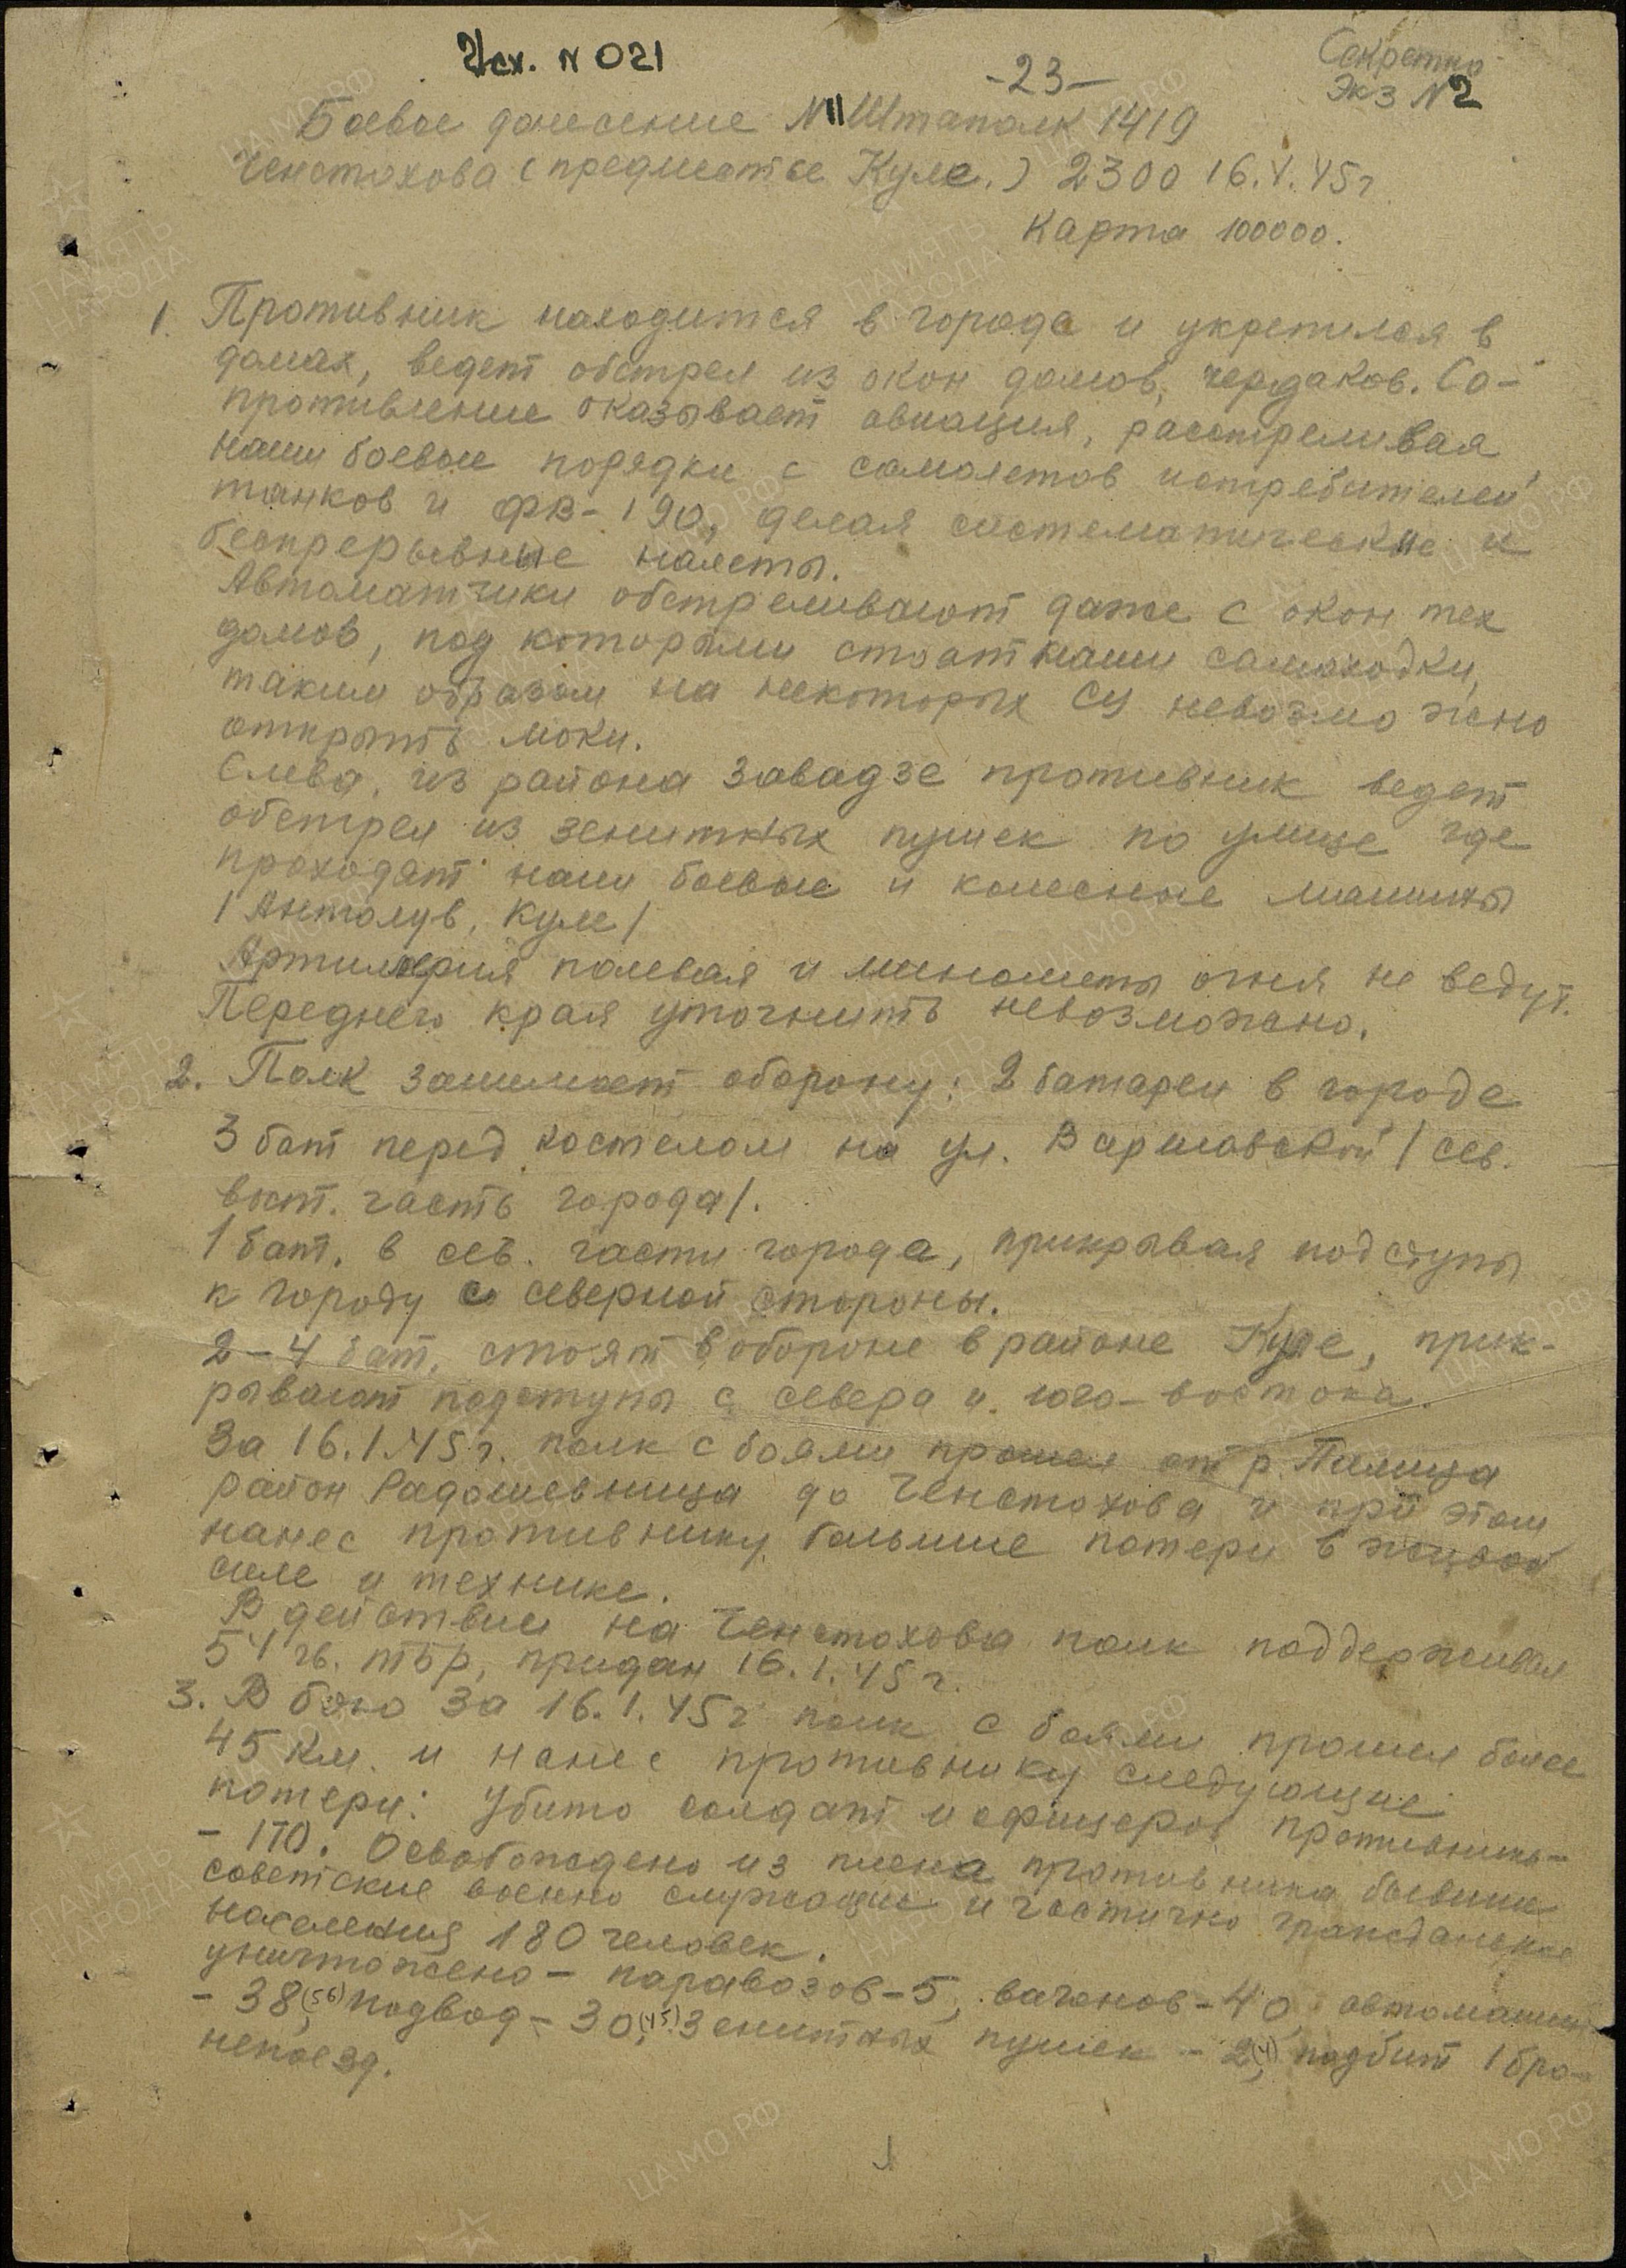 Исх. N 021
-23-
Секретно
Экз N2
Боевое донесение N11 Штаполк 1419
Ченстохова (предместье Куле.) 2300 16.1.45г
Карта 100000.
1. Противник находится в городе и укрепился в
домах, ведет обстрел из окон домов, чердаков. Со-
противление оказывает авиация, расстреливая
наши боевые порядки с самолетов истребителей
танков и ФВ-190, делая систематические и
беспрерывные налеты.
Автоматчики обстреливают даже с окон тех
домов, под которыми стоят наши самоходки,
таким образом на некоторых СУ невозможно
открыть люки.
Слева, из района Завадзе противник ведет
обстрел из зенитных пушек по улице где
проходят наши боевые и колесные машины
/Антолув, Куле/
Артиллерия полевая и минометы огня не ведут.
Переднего края уточнить невозможно.
2. Полк занимает оборону: 2 батареи в городе
3 бат перед костелом на ул. Варшавской /сев.
вост. часть города/.
1 бат. в сев. части города, прикрывая подступы
к городу с северной стороны.
2-4 бат. стоят в обороне в районе Куле, прик-
рывают подступы с севера и юго-востока.
За 16.1.45г. полк с боями прошел от р. Пилица
район Радошевница до Ченстохова и при этом
нанес противнику большие потери в живой
силе и технике.
В действии на Ченстохова полк поддерживал
54 гв. тбр, придан 16.1.45г.
3. В бою за 16.1.45г полк с боями прошел более
45 км. и нанес противнику следующие
потери: Убито солдат и офицеров противника-
- 170. Освобождено из плена противника бывшие
советские военнослужащие и частично гражданское
население 180 человек.
уничтожено - паравозов-5, вагонов-40, автомашин
- 38,(56) подвод - 30,(45) Зенитных пушек - 2,(4) подбит 1 бро-
непоезд.